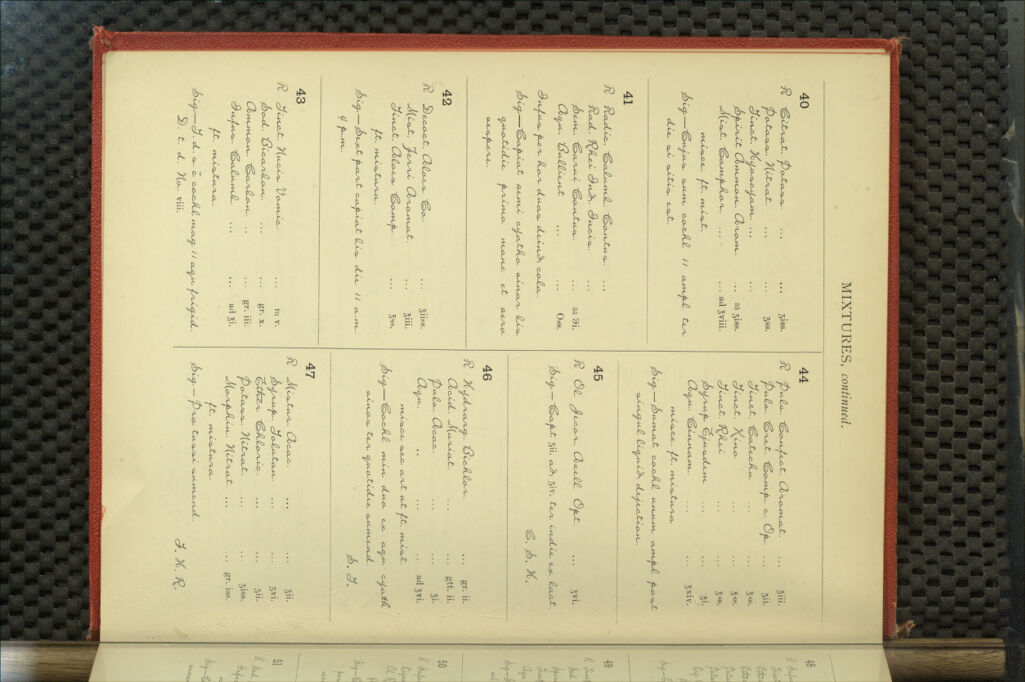 MIXTURES, continued.
40
R Citrat. Potass. ... ... ʒiss.
Potass. Nitrat. ... ʒss.
Tinct. Hyoscyam. ...
Spirit Ammon. Arom. aa ʒiss.
Mist. Camphor. ... ... ad ʒviii.
misce. ft. mist.
Sig—Cujus sum cochl 11 ampl ter
die si sitis est.
41
R Radic. Calumb. Contus. ...
Rad. Rhei Ind. Incis.
Sem. Carui Contus. aa ℈i.
Aqu. Bullient ... ... Oss.
Infus per hor duas deind cola.
Sig—Capiat semi cyatho vinar bis
quotidie primo mane et sero
vespere.
42
R Decoct. Alois Co. ... ʒiiss.
Mist. Ferri Aromat. ʒiii.
Tinct. Alois Comp. ... ʒss.
ft. mistura.
Sig—Sext part capiat bis die 11 a.m.
4 p.m.
43
R Tinct. Nucis Vomic. ... m v.
Sod. Bicarbon. ... ... gr. x.
Ammon. Carbon. .. ... gr. iii.
Infus. Calumb. ... ... ad ʒi.
ft. mistura.
Sig—T. d. s. c̄ cochl mag 11 aqu frigid.
D. t. d. No. viii.
44
R Pulv. Confect. Aromat. ... ʒiii.
Pulv. Cret. Comp. c. Op. ... ʒii.
Tinct. Catechu ... ... ʒss.
Tinct. Kino ... ... ʒss.
Tinct. Rhei ... ... ʒss.
Syrup Ejusdem ... ... ʒi.
Aqu. Cinnam. ... ... ʒxiv.
misce. ft. mistura.
Sig—Sumat cochl unum ampl post
singul liquid dejection.
45
R Ol. Jecor. Asell Opt. ... ʒvi.
Sig—Capt ʒii. ad ʒiv. ter indie ex lact.
C. S. H.
46
R Hydrarg. Bichlor. ... gr. ii.
Acid. Muriat. ... ... gtt. ii.
Pulv. Acac. ... ... ʒi.
Aqu. .. ... .. ad ʒvi.
misce sec art ut ft. mist.
Sig—Cochl min duo ex aqu cyath
vinos ter quotidie sumend.
S. J.
47
R Mistur. Acac. ... ... ʒii.
Syrup Tolutan. ... ... ʒvi.
Ether Chloric. ... ... ʒii.
Potass. Nitrat. ... ... ʒiss.
Morphin. Nitrat. ... .. gr. iss.
ft. mistura.
Sig—Pro tussi sumend.
J. H. R.
48
49
50
51